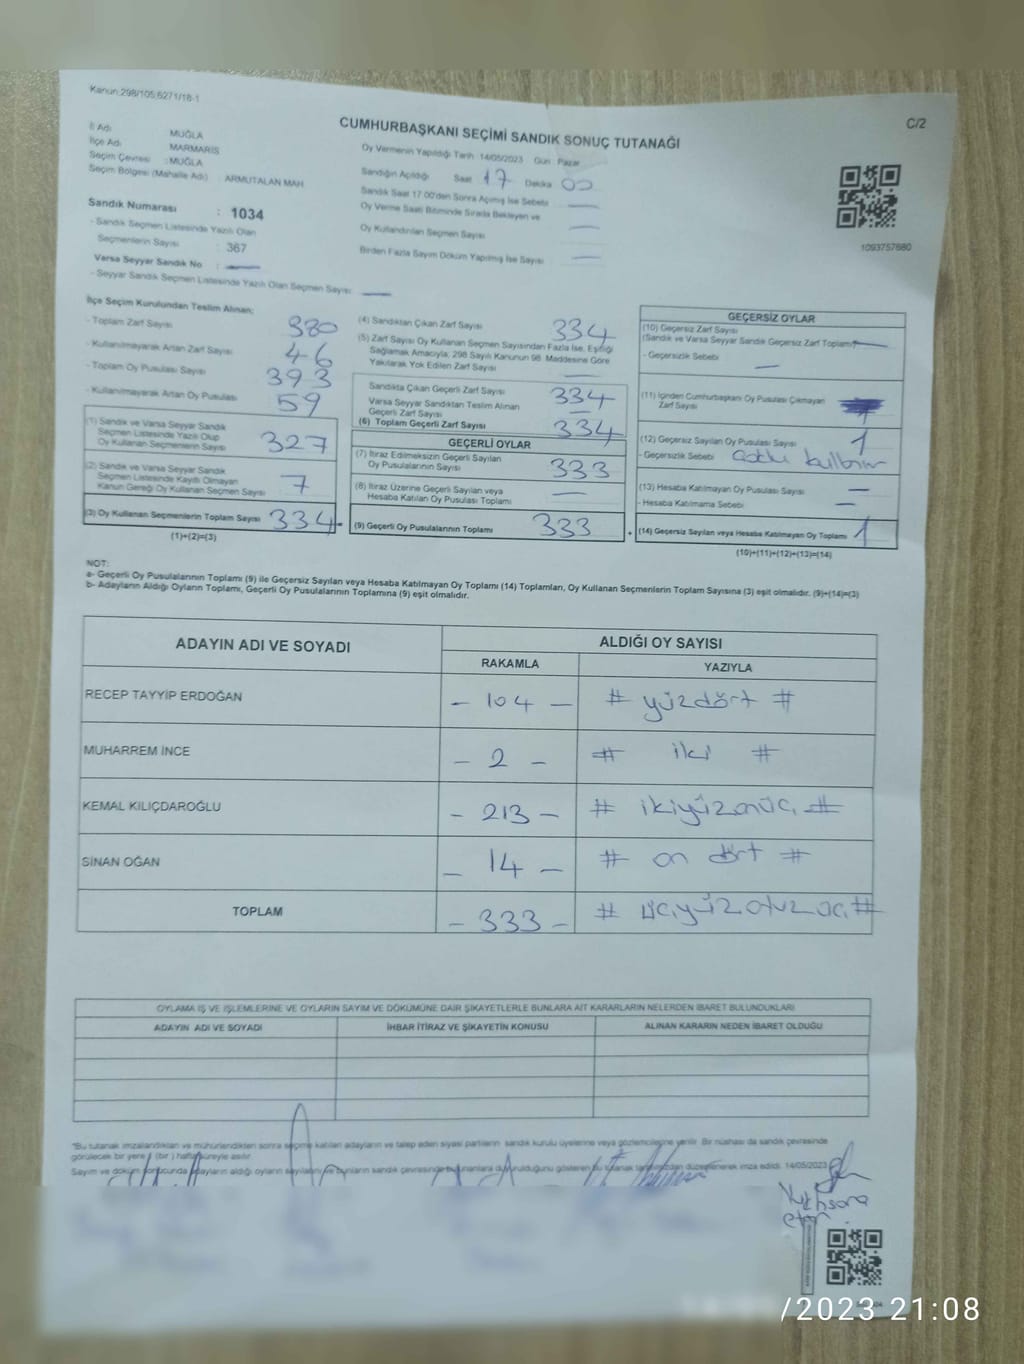 Kanun:298/105;6271/18-1
C/2
CUMHURBAŞKANI SEÇİMİ SANDIK SONUÇ TUTANAĞI
İl Adı MUĞLA
İlçe Adı MARMARİS
Seçim Çevresi : MUĞLA
Seçim Bölgesi (Mahalle Adı) : ARMUTALAN MAH.
Sandık Numarası : 1034
- Sandık Seçmen Listesinde Yazılı Olan
Seçmenlerin Sayısı : 367
Varsa Seyyar Sandık No : —
- Seyyar Sandık Seçmen Listesinde Yazılı Olan Seçmen Sayısı : —
Oy Vermenin Yapıldığı Tarih :14/05/2023 Gün : Pazar
Sandığın Açıldığı Saat 17 Dakika 00
Sandık Saat 17.00'den Sonra Açılmış İse Sebebi —
Oy Verme Saati Bitiminde Sırada Bekleyen ve
Oy Kullandırılan Seçmen Sayısı —
Birden Fazla Sayım Döküm Yapılmış İse Sayısı —
1093757680
İlçe Seçim Kurulundan Teslim Alınan;
- Toplam Zarf Sayısı 380
- Kullanılmayarak Artan Zarf Sayısı 46
- Toplam Oy Pusulası Sayısı 393
- Kullanılmayarak Artan Oy Pusulası 59
(1) Sandık ve Varsa Seyyar Sandık
Seçmen Listesinde Yazılı Olup
Oy Kullanan Seçmenlerin Sayısı 327
(2) Sandık ve Varsa Seyyar Sandık
Seçmen Listesinde Kayıtlı Olmayan
Kanun Gereği Oy Kullanan Seçmen Sayısı 7
(3) Oy Kullanan Seçmenlerin Toplam Sayısı 334 =
(1)+(2)=(3)
(4) Sandıktan Çıkan Zarf Sayısı 334
(5) Zarf Sayısı Oy Kullanan Seçmen Sayısından Fazla İse, Eşitliği
Sağlamak Amacıyla; 298 Sayılı Kanunun 98. Maddesine Göre
Yakılarak Yok Edilen Zarf Sayısı —
Sandıkta Çıkan Geçerli Zarf Sayısı 334
Varsa Seyyar Sandıktan Teslim Alınan
Geçerli Zarf Sayısı —
(6) Toplam Geçerli Zarf Sayısı 334
GEÇERLİ OYLAR
(7) İtiraz Edilmeksizin Geçerli Sayılan
Oy Pusulalarının Sayısı 333
(8) İtiraz Üzerine Geçerli Sayılan veya
Hesaba Katılan Oy Pusulası Toplamı —
(9) Geçerli Oy Pusulalarının Toplamı 333 +
GEÇERSİZ OYLAR
(10) Geçersiz Zarf Sayısı
(Sandık ve Varsa Seyyar Sandık Geçersiz Zarf Toplamı) —
- Geçersizlik Sebebi —
(11) İçinden Cumhurbaşkanı Oy Pusulası Çıkmayan
Zarf Sayısı
(12) Geçersiz Sayılan Oy Pusulası Sayısı 1
- Geçersizlik Sebebi
(13) Hesaba Katılmayan Oy Pusulası Sayısı —
- Hesaba Katılmama Sebebi —
(14) Geçersiz Sayılan veya Hesaba Katılmayan Oy Toplamı 1
(10)+(11)+(12)+(13)=(14)
NOT:
a- Geçerli Oy Pusulalarının Toplamı (9) ile Geçersiz Sayılan veya Hesaba Katılmayan Oy Toplamı (14) Toplamları, Oy Kullanan Seçmenlerin Toplam Sayısına (3) eşit olmalıdır. (9)+(14)=(3)
b- Adayların Aldığı Oyların Toplamı, Geçerli Oy Pusulalarının Toplamına (9) eşit olmalıdır.
ADAYIN ADI VE SOYADI ALDIĞI OY SAYISI
RAKAMLA YAZIYLA
RECEP TAYYİP ERDOĞAN - 104 - # yüzdört #
MUHARREM İNCE - 2 - # iki #
KEMAL KILIÇDAROĞLU - 213 - # ikiyüzonüç #
SİNAN OĞAN - 14 - # on dört #
TOPLAM - 333 - # üçyüzotuzüç #
OYLAMA İŞ VE İŞLEMLERİNE VE OYLARIN SAYIM VE DÖKÜMÜNE DAİR ŞİKAYETLERLE BUNLARA AİT KARARLARIN NELERDEN İBARET BULUNDUKLARI
ADAYIN ADI VE SOYADI İHBAR İTİRAZ VE ŞİKAYETİN KONUSU ALINAN KARARIN NEDEN İBARET OLDUĞU
*Bu tutanak imzalandıktan ve mühürlendikten sonra seçime katılan adayların ve talep eden siyasi partilerin sandık kurulu üyelerine veya gözlemcilerine verilir. Bir nüshası da sandık çevresinde
görülecek bir yere (bir) hafta süreyle asılır.
Sayım ve döküm sonucunda adayların aldığı oyların sayılarını ve bunların sandık çevresinde bulunanlara duyurulduğunu gösteren bu tutanak tarafımızdan düzenlenerek imza edildi. 14/05/2023
/2023 21:08